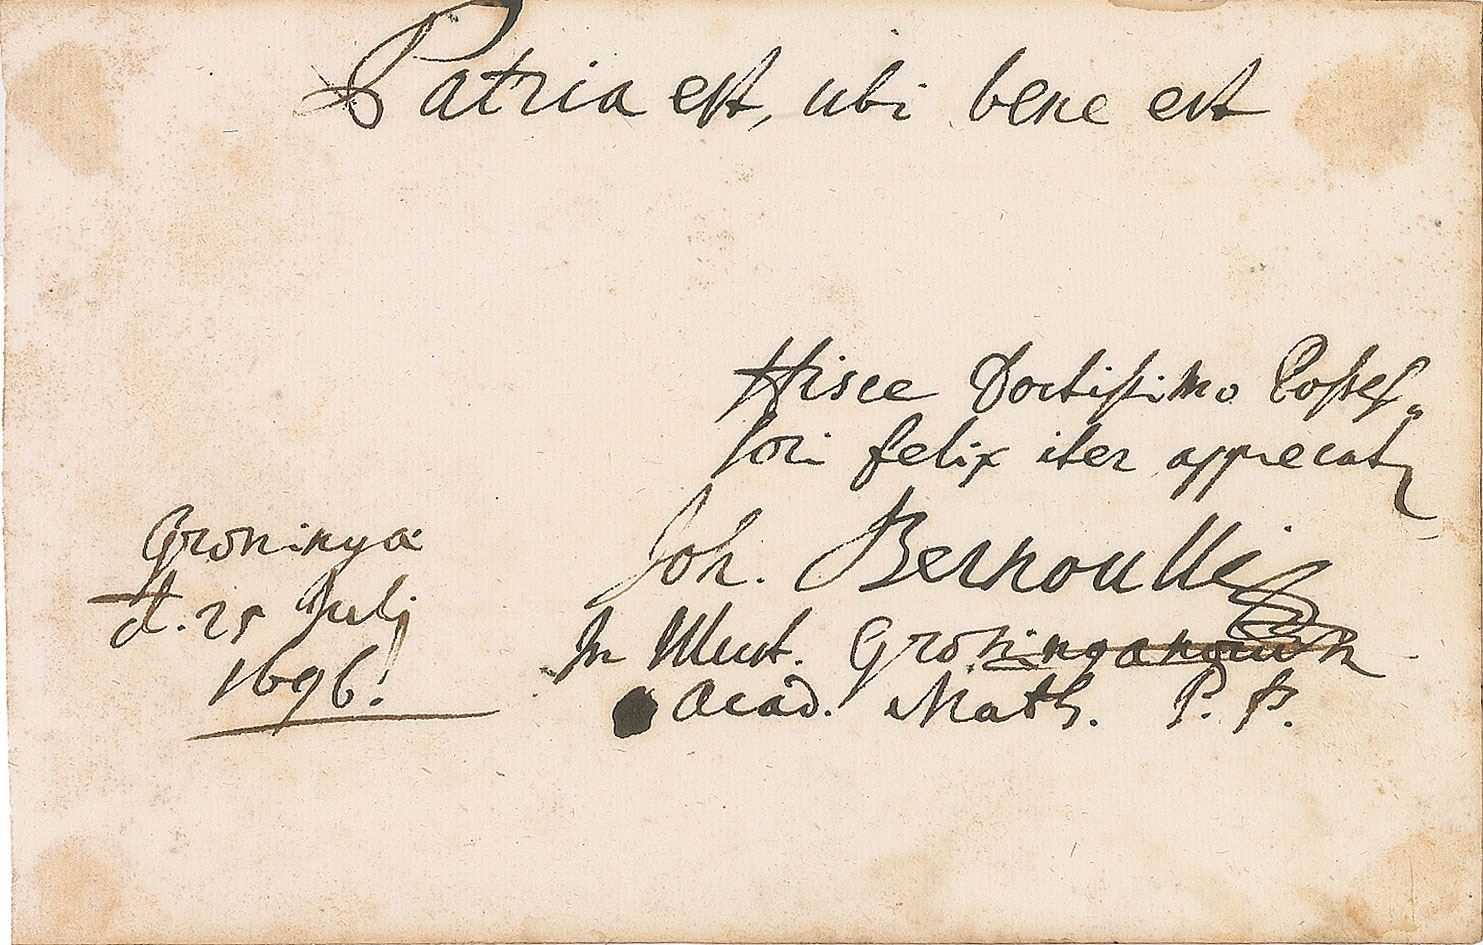 Patria est, ubi bene est
Hisce Doctissimo Posses-
sori felix iter apprecatr
Joh. Bernoulli
Groningæ
d. 25 Julij
1696.
In Illust. Groningana
Acad. Math. P. P.